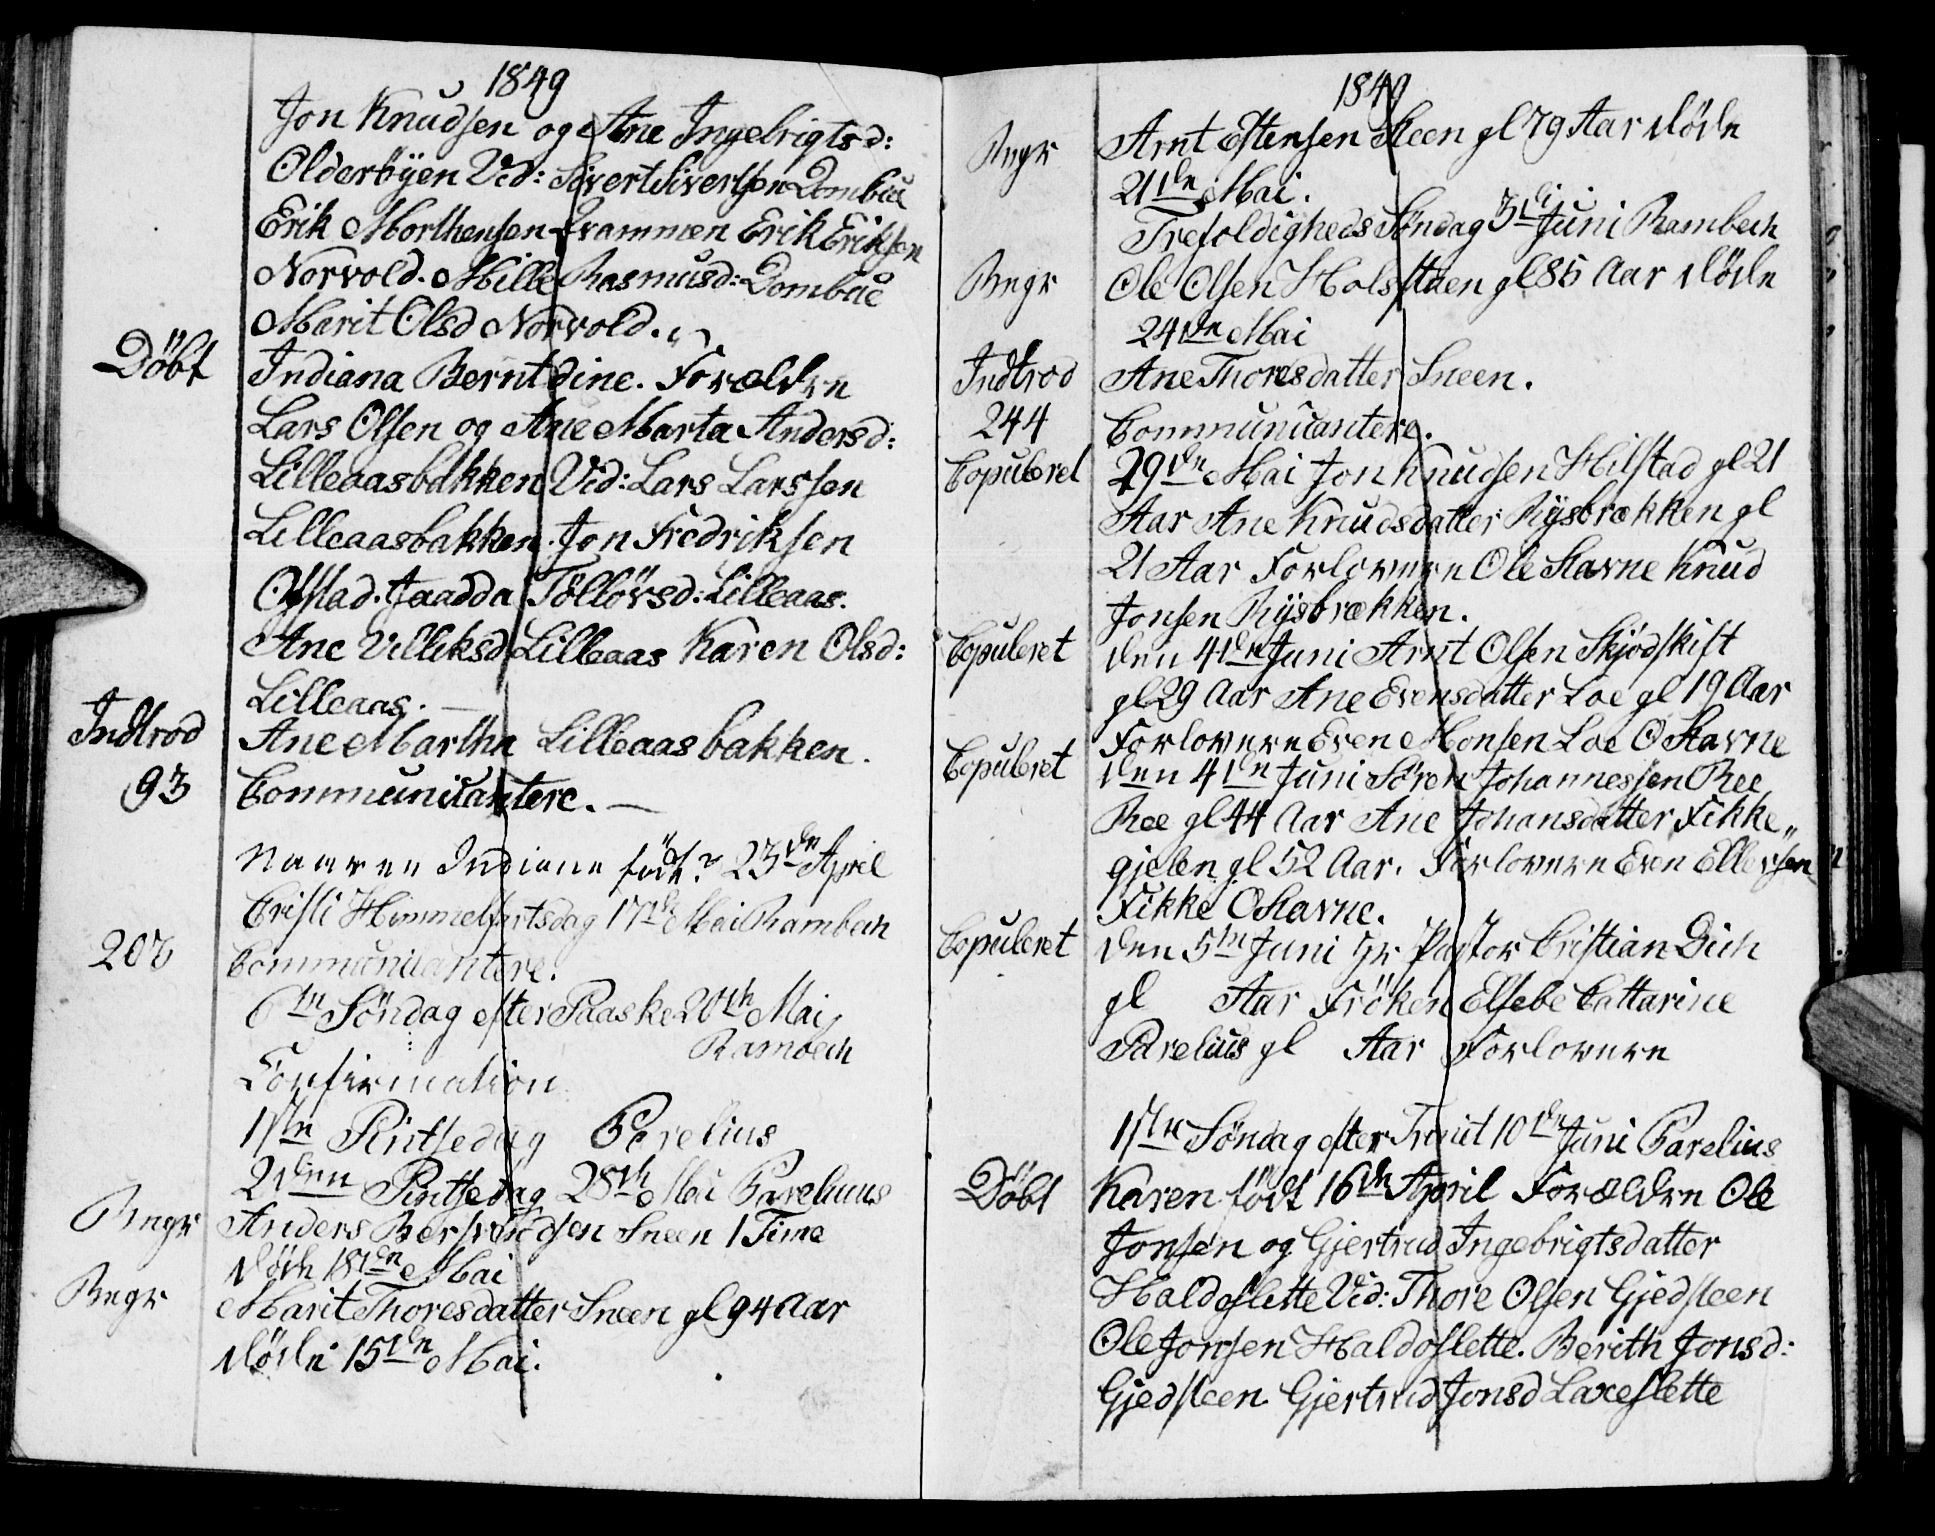 1849
Jon Knudsen og Ane Ingebrigtsd:
Olderöyen Vid: Sivert Sivertsen Dombue
Erik Morthensen Evammen Erik Eriksen
Norvold. Mille Rasmusd: Dombue
Marit Olsd Norvold.
Döbt Indiana Berntdine. Forældre
Lars Olsen og Ane Marta Andersd:
Lilleaasbakken Vid: Lars Larssen
Lilleaasbakken. Jon Fredriksen
Ofstad. Jaadda Töllövsd: Lilleaas.
Ane Villiksd Lilleaas Karen Olsd:
Lilleaas.
Indtrod Ane Martha Lilleaasbakken.
93 Communicantere.
Naar er Indiana født? 23de April
Cristi Himmelfartsdag 17de Mai Rambech
207 Communicantere.
6te Söndag efter Paaske 20de Mai
Rambech
Confirmation
1ste Pintsedag Parelius
2den Pintsedag 28de Mai Parelius
Begr Anders Bersvendsen Sneen 1 Time
död 18de Mai
Begr Marit Thoresdatter Sneen gl 94 Aar
döde 15de Mai.
1849
Begr Arnt Estensen Steen gl 79 Aar döde
21de Mai.
Trefoldigheds Söndag 3die Juni Rambech
Begr Ole Olsen Holsstuen gl 85 Aar döde
24de Mai
Indtrod Ane Thoresdatter Sneen.
244 Communicantere.
Copuleret 29de Mai Jon Knudsen Hilstad gl 21
Aar Ane Knudsdatter Rysbrækken gl
21 Aar Forlovere Ole Stavne Knud
Jonsen Rysbrækken.
Copuleret den 4de Juni Arnt Olsen Skjödskift
gl 29 Aar Ane Evensdatter Loe gl 19 Aar
Forlovere Even Monsen Loe O Stavne
Copuleret den 4de Juni Sören Johannessen Ree
Ree gl 44 Aar Ane Johansdatter Fikke„
gjelen gl 52 Aar. Forlovere Even Ellevsen
Fikke O Stavne.
Copuleret den 5te Juni Hr Pastor Cristian Dich
gl Aar Fröken Elsebe Cattarine
Parelius gl Aar Forlovere
1ste Söndag efter Trinit 10de Juni Parelius
Döbt Karen født 16de April Forældre Ole
Jonsen og Gjertrud Ingebrigtsdatter
Haldoslette Vid: Thore Olsen Gjedsteen
Ole Jonsen Haldoslette. Berith Jonsd:
Gjedsteen Gjertrud Jonsd Laxeslette